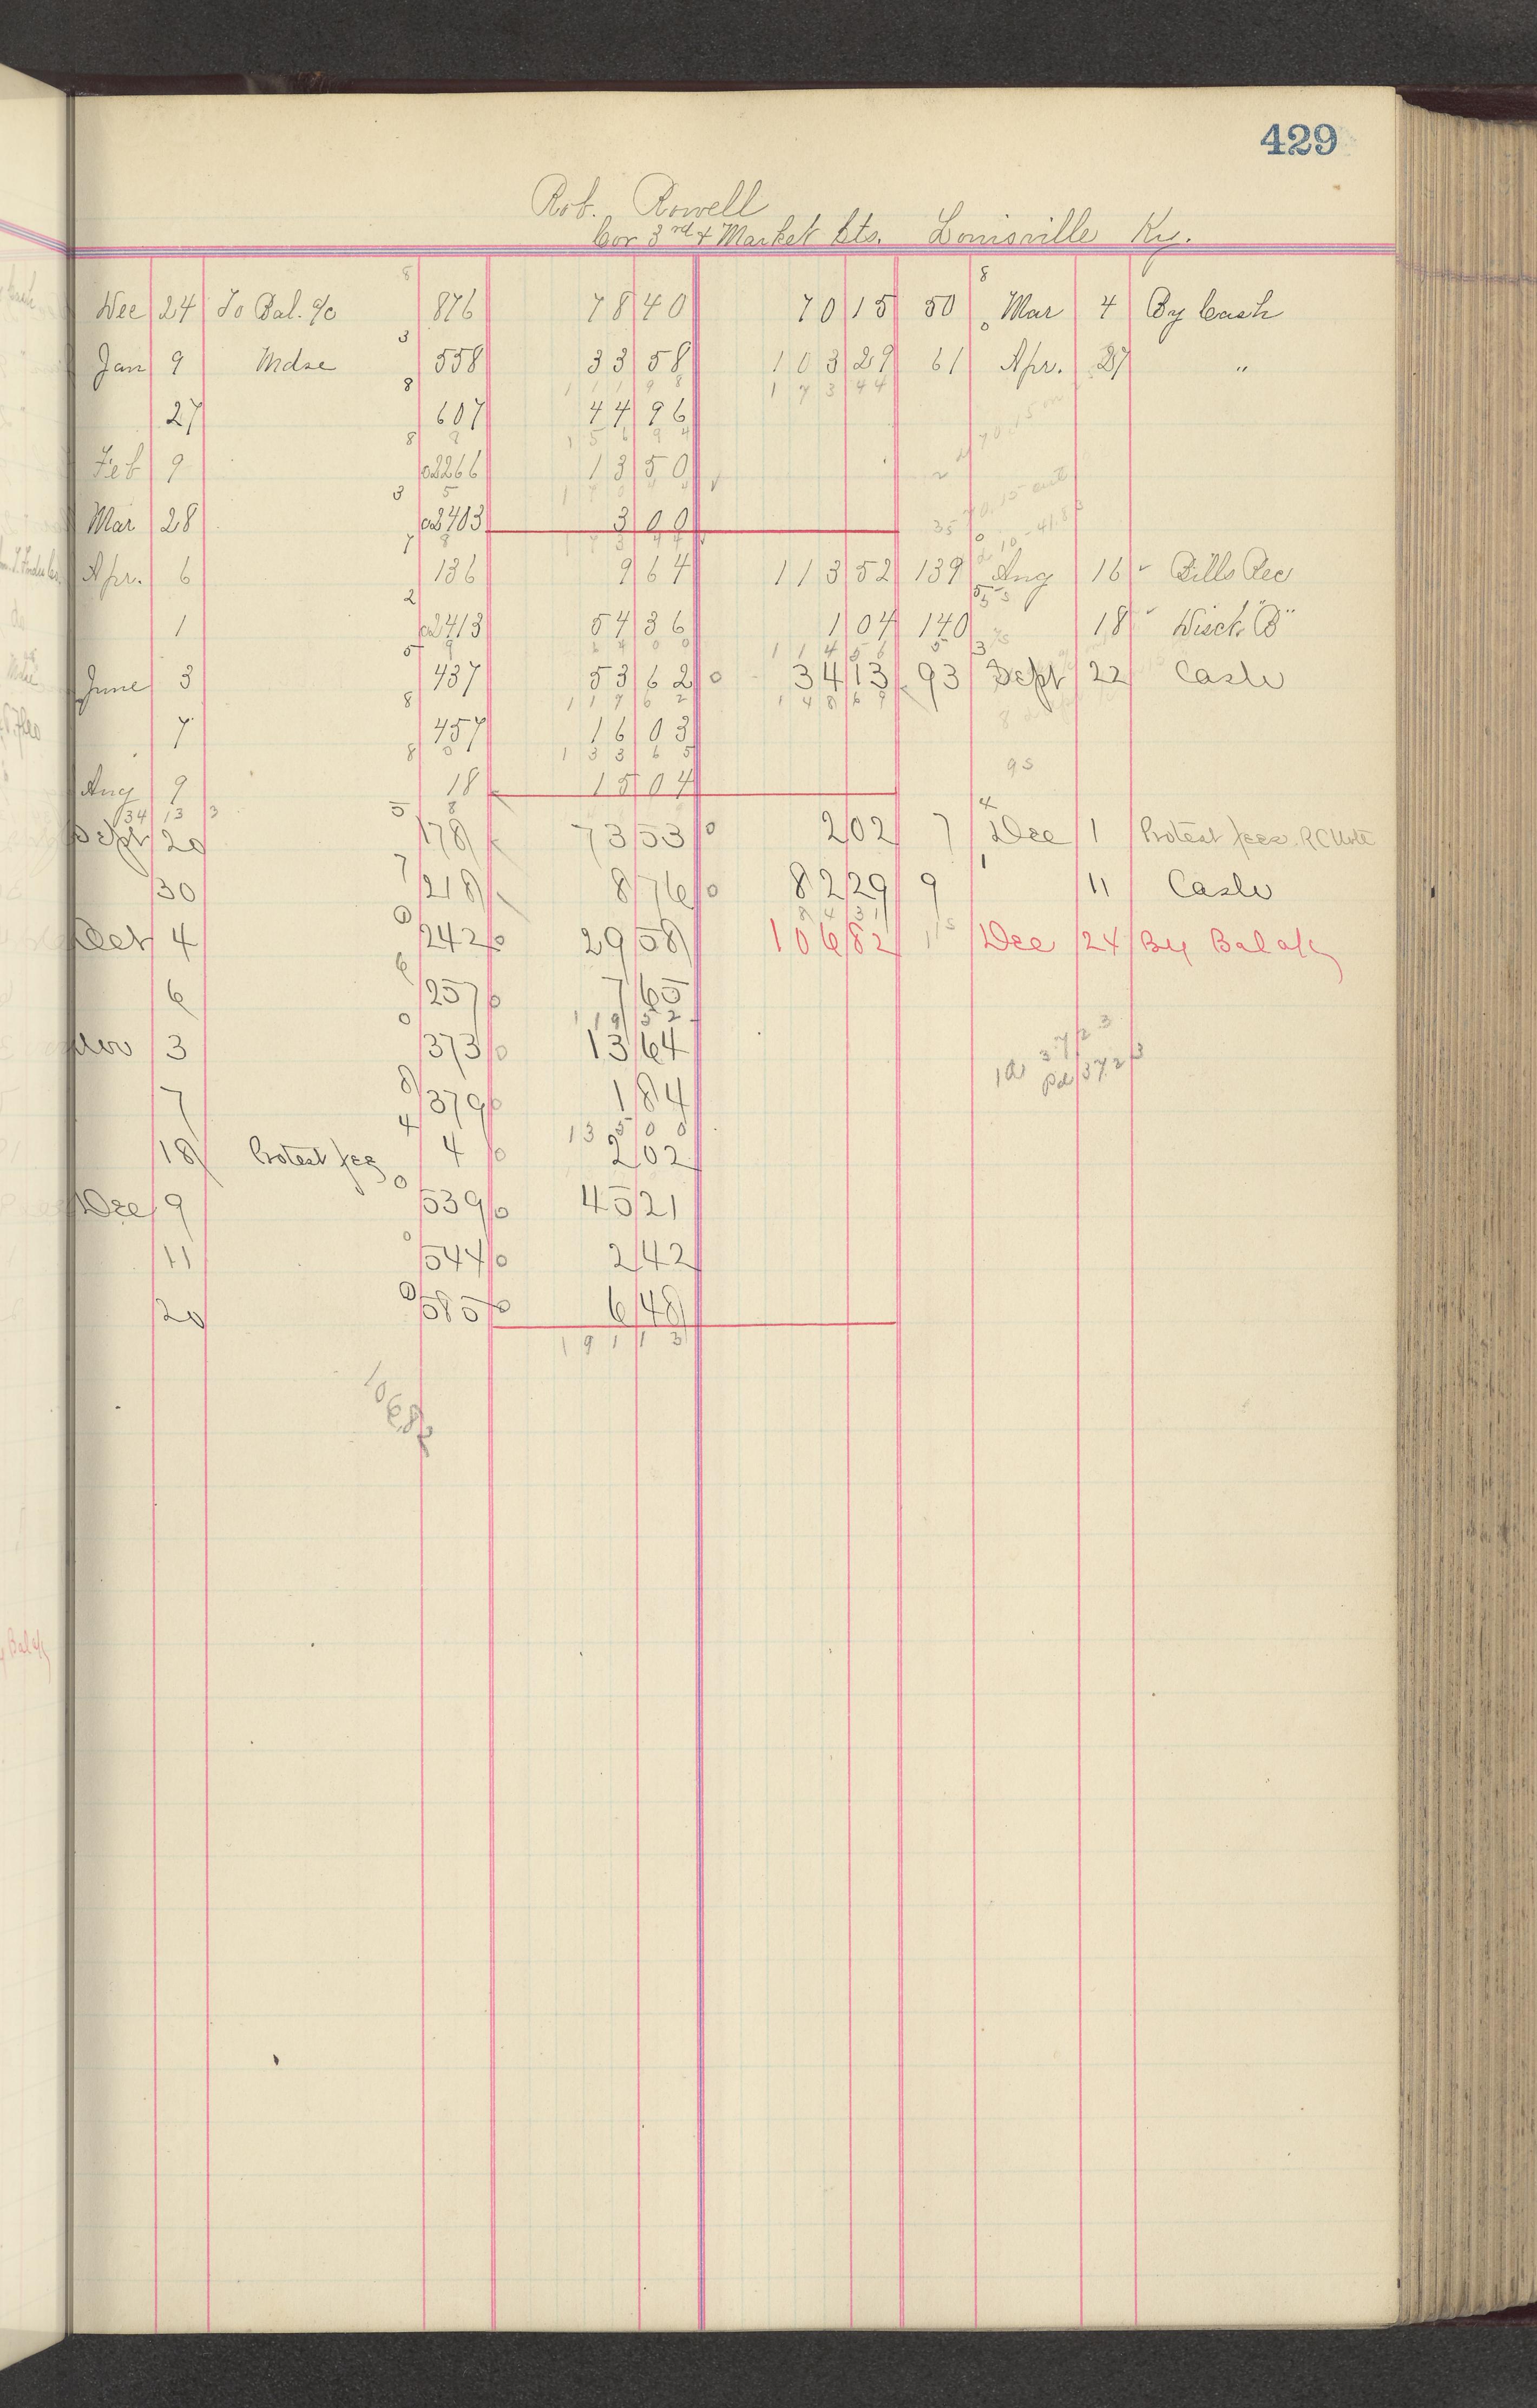 429
Rob. Rowell
Cor 3rd & Market Sts. Louisville Ky.
Dec 24 To Bal. a/c 876 78 40 70 15 50 Mar 4 By Cash
Jan 9 Mdse 558 33 58 103 29 61 Apr. 27 "
1 1 1 9 8 1 7 3 4 4
27 607 44 96
1 5 6 9 4
Feb 9 266 13 50
Mar 28 403 3 00
1 7 3 4 4
Apr. 6 136 9 64 113 52 139 Aug 16 Bills Rec
1 413 54 36 1 04 140 18 Disct. "B"
6 4 0 0 1 1 4 5 6
June 3 437 53 62 34 13 93 Sept 22 Cash
1 1 7 6 2 1 4 8 6 9
7 457 16 03
1 3 3 6 5
Aug 9 18 15 04
34 13
Sept 20 178 73 53 2 02 7 Dec 1 Protest fees
30 218 8 76 82 29 9 11 Cash
8 4 3 1
Oct 4 242 29 58 106 82 Dec 24 By Bal a/c
6 257 7 65
1 1 9 5 2
Nov 3 373 13 64
7 379 1 84
13 5 0 0
18 Protest fee 4 2 02
Dec 9 539 45 21
11 544 2 42
20 585 6 48
1 9 1 1 3
3723
Pd 3723
10682